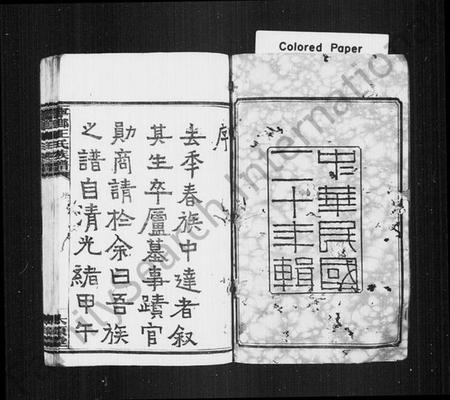 Colored Paper
中華民國
二十年輯
序
去季春族中達者叙
其生卒廬墓事蹟官
勛商請於余曰吾族
之譜自清光緒甲午